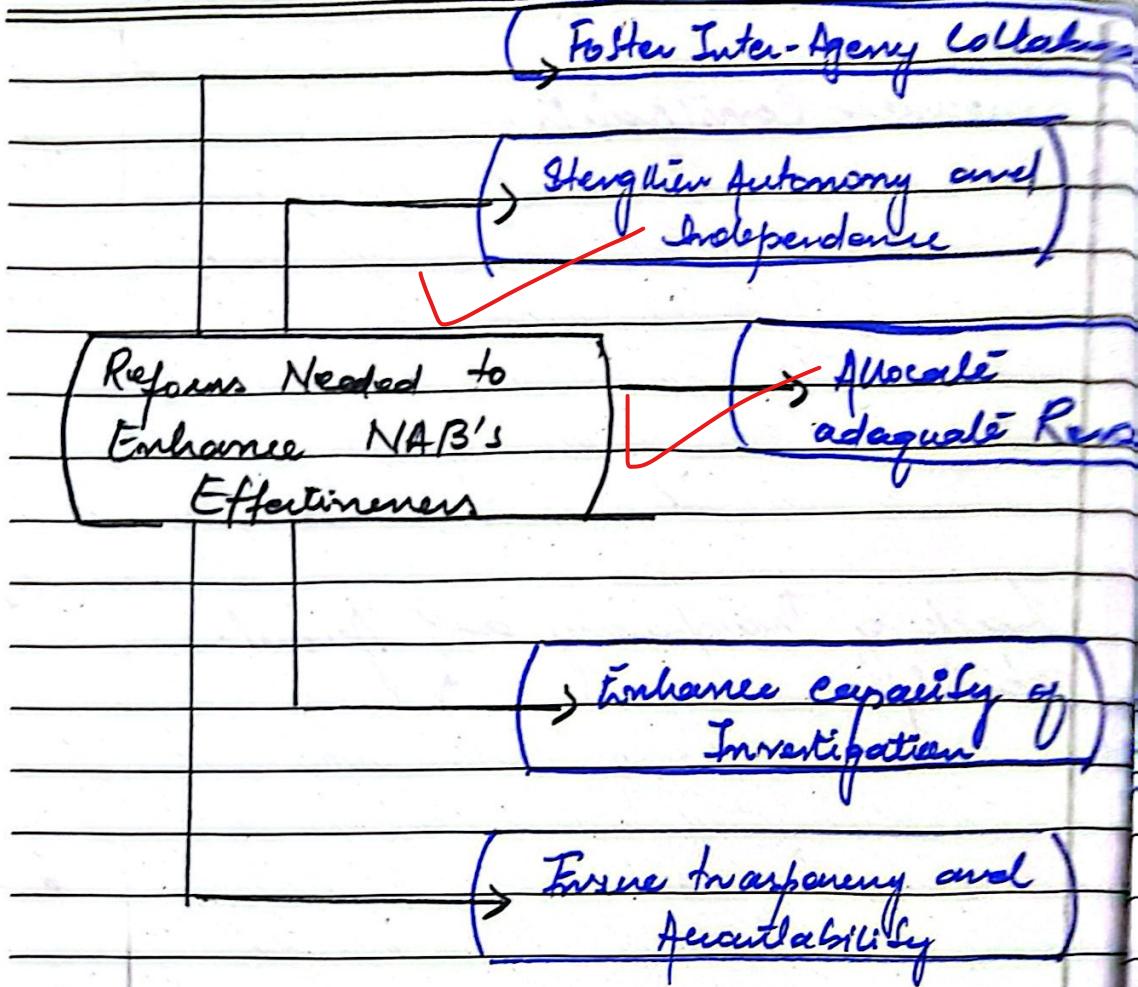 Foster Inter-Agency Collab
Stengthen Autonomy and
Independance
Reforms Needed to
Enhance NAB's
Effectiveness
Allocate
adaquate
Enhance capacity of
Investigation
Ensure trasparency and
Accountability